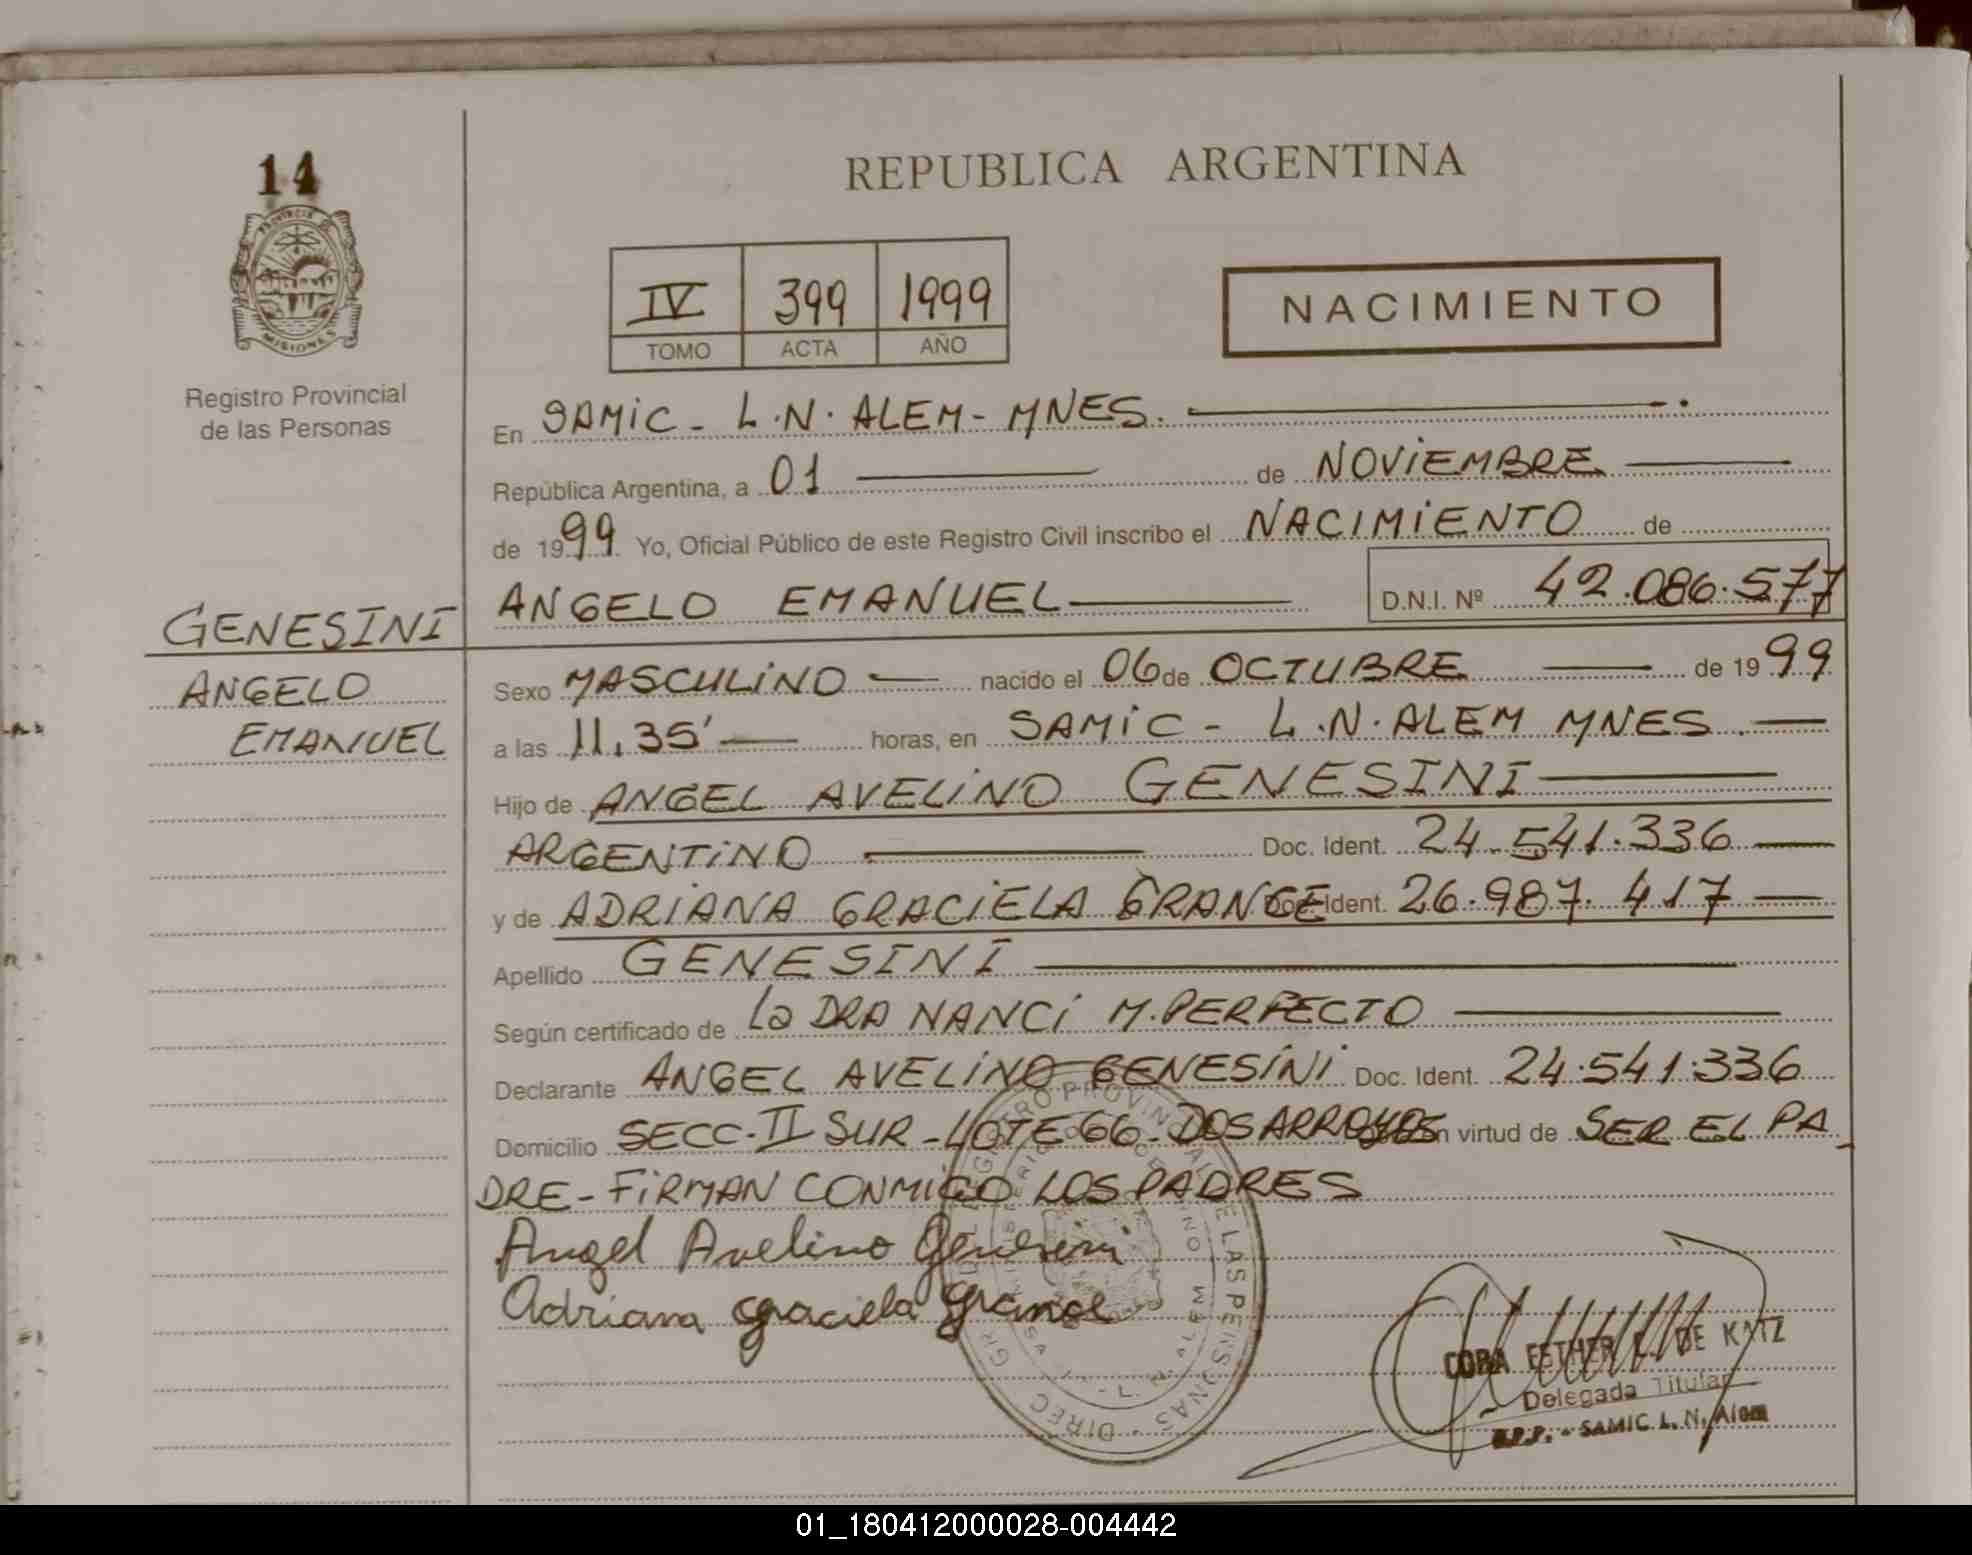 14
PROVINCIA DE
MISIONES
Registro Provincial
de las Personas
REPUBLICA ARGENTINA
IV 399 1999
TOMO ACTA AÑO
NACIMIENTO
En SAMIC - L.N. ALEM - MNES.
República Argentina, a 01 de NOVIEMBRE
de 1999 Yo, Oficial Público de este Registro Civil inscribo el NACIMIENTO de
ANGELO EMANUEL D.N.I. Nº 42.086.577
GENESINI
ANGELO
EMANUEL
Sexo MASCULINO nacido el 06 de OCTUBRE de 1999
a las 11,35' horas, en SAMIC - L.N. ALEM MNES.
Hijo de ANGEL AVELINO GENESINI
ARGENTINO Doc. Ident. 24.541.336
y de ADRIANA GRACIELA GRANCE Doc. Ident. 26.987.417
Apellido GENESINI
Según certificado de La DRA NANCI M. PERFECTO
Declarante ANGEL AVELINO GENESINI Doc. Ident. 24.541.336
Domicilio SECC-II SUR - LOTE 66 - DOS ARROYOS en virtud de SER EL PA-
DRE - FIRMAN CONMIGO LOS PADRES
Angel Avelino Genesini
Adriana Graciela Grance
CORA ESTHER DE KATZ
Delegada Titular
R.P.P. - SAMIC L. N. Alem
01_180412000028-004442